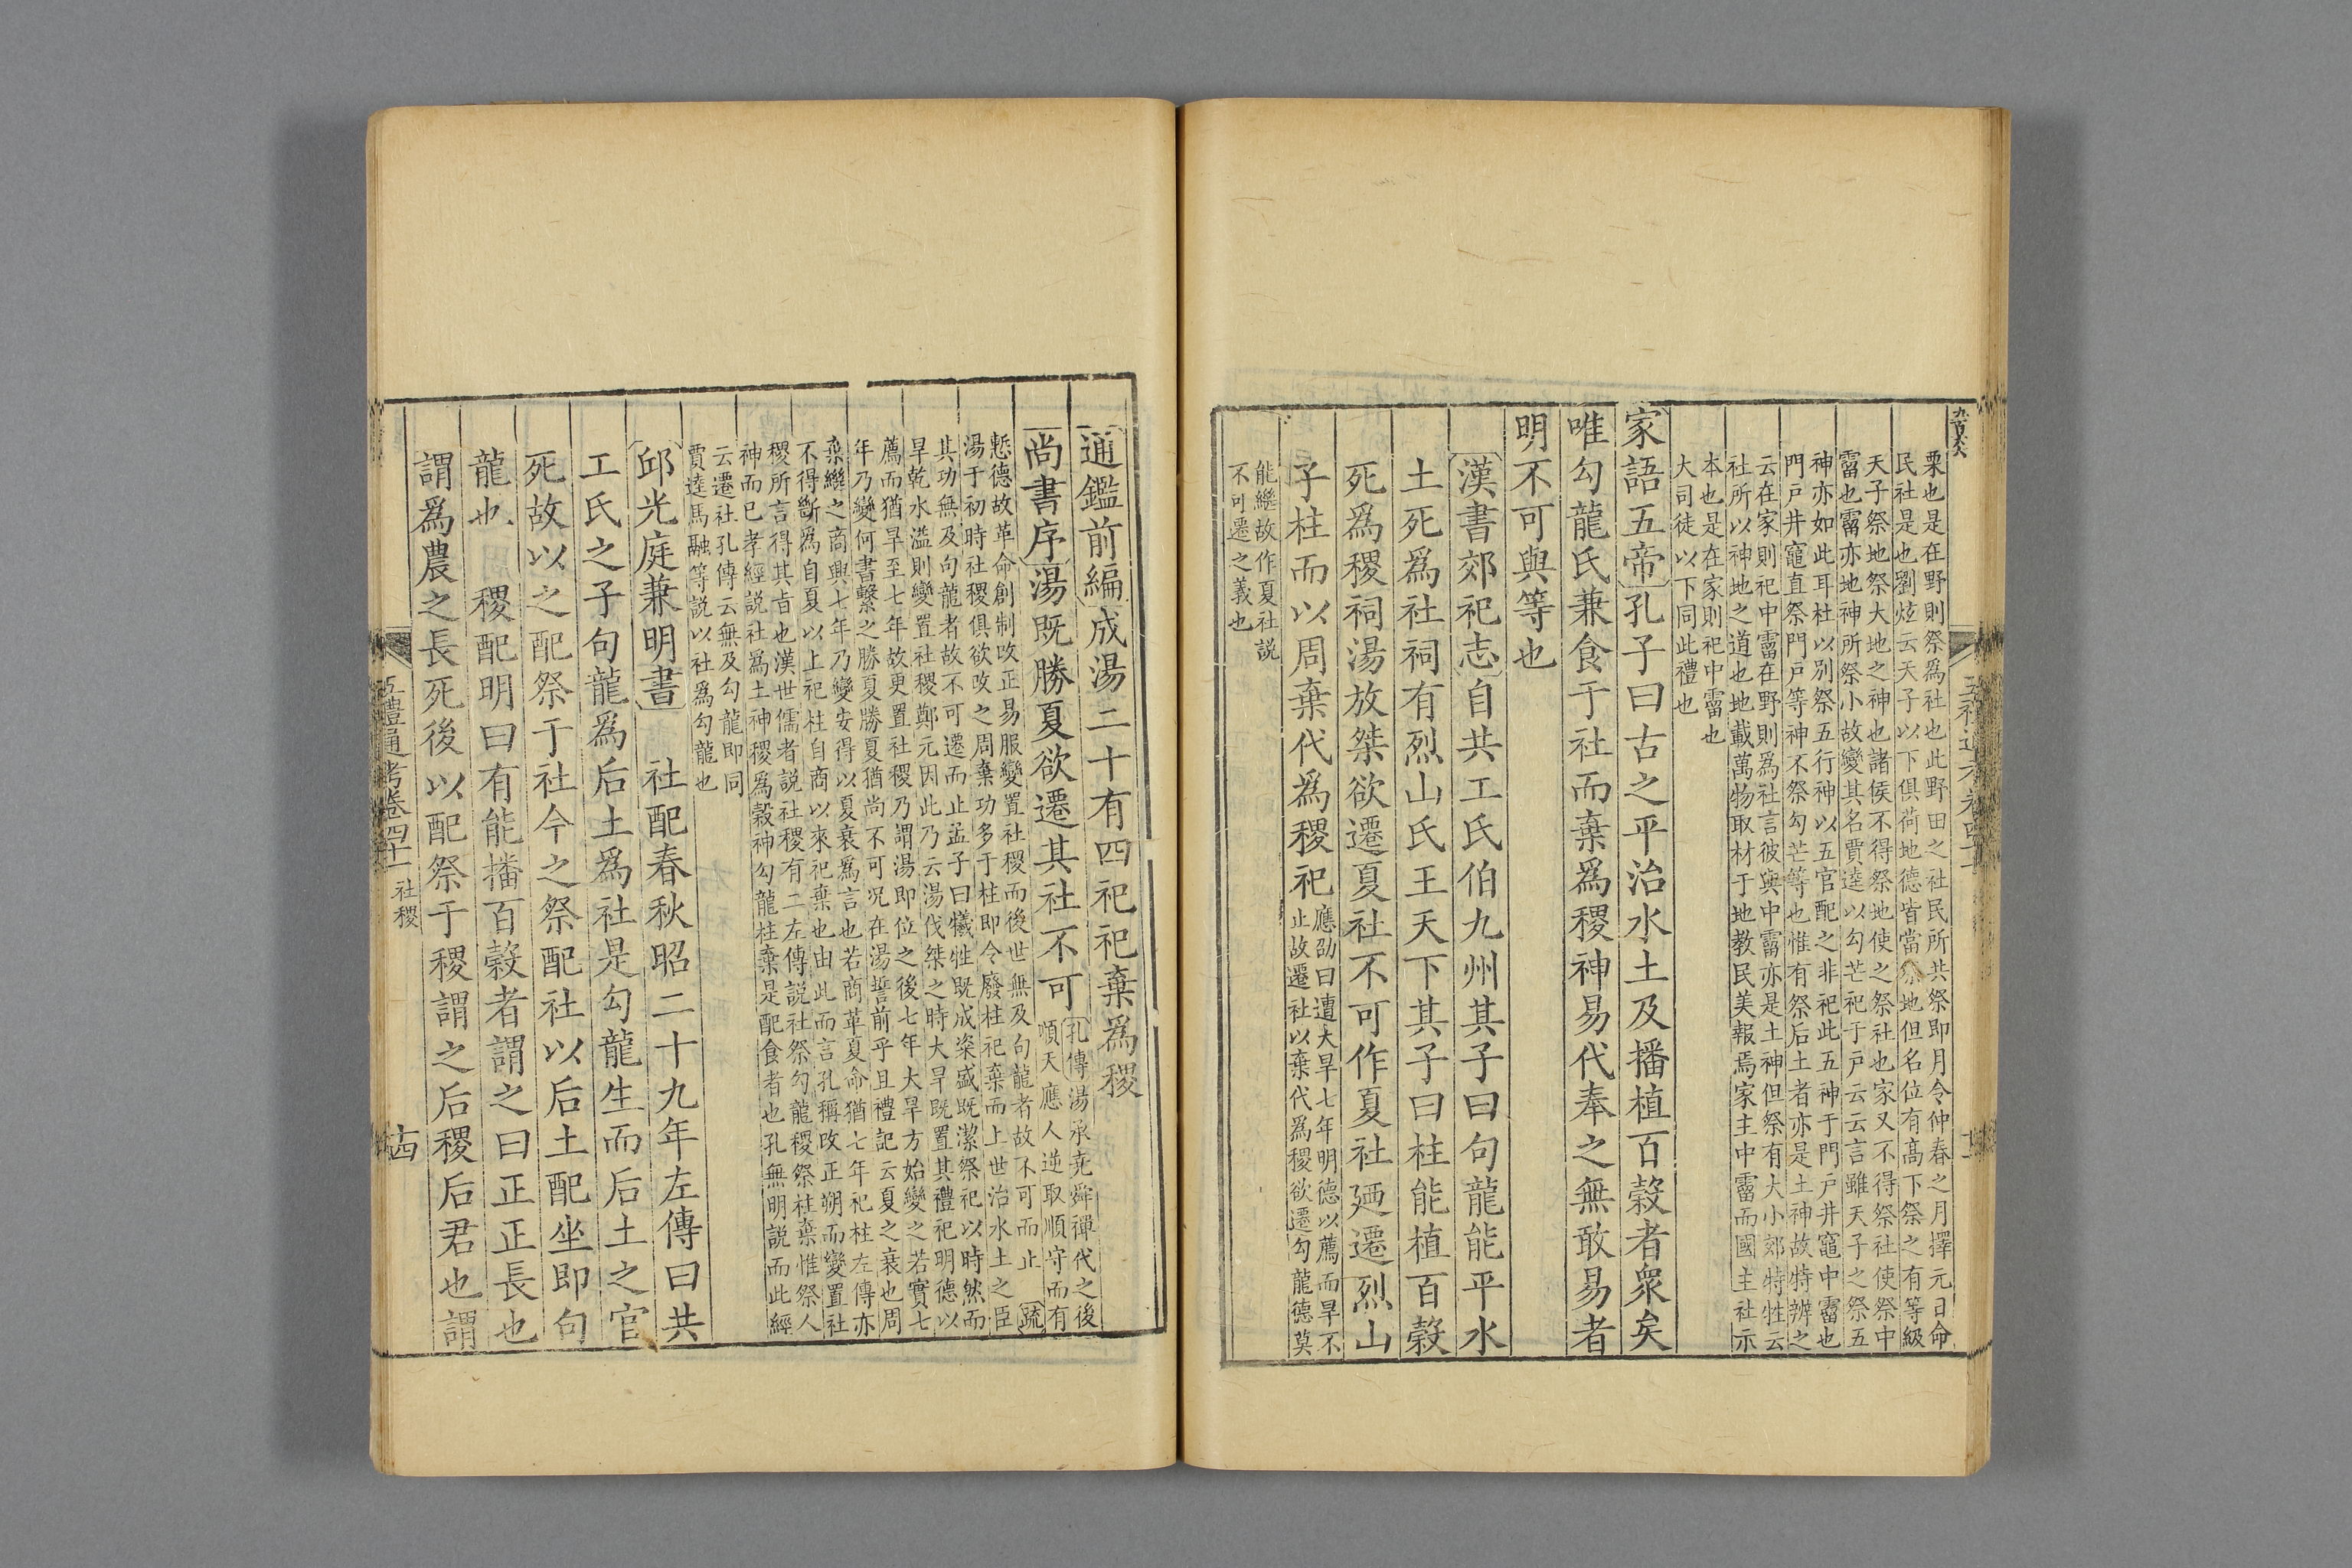 栗也是在野則祭爲社也此野田之社民所共祭即月令仲春之月擇元日命
民社是也劉炫云天子以下俱荷地德皆當祭地但名位有高下祭之有等級
天子祭地祭大地之神也諸侯不得祭地使之祭社也家又不得祭社使祭中
霤也霤亦地神所祭小故變其名賈逵以勾芒祀于戸云云言雖天子之祭五
神亦如此耳杜以別祭五行神以五官配之非祀此五神于門戸井竈中霤也
門戸井竈直祭門戸等神不祭勾芒等也惟有祭后土者亦是土神故特辨之
云在家則祀中霤在野則爲社言彼與中霤亦是土神但祭有大小郊特牲云
社所以神地之道也地載萬物取材于地教民美報焉家主中霤而國主社示
本也是在家則祀中霤也
大司徒以下同此禮也
家語五帝孔子曰古之平治水土及播植百穀者衆矣
唯勾龍氏兼食于社而棄爲稷神易代奉之無敢易者
明不可與等也
漢書郊祀志自共工氏伯九州其子曰句龍能平水
土死爲社祠有烈山氏王天下其子曰柱能植百穀
死爲稷祠湯放桀欲遷夏社不可作夏社廼遷烈山
子柱而以周棄代爲稷祀
應劭曰遭大旱七年明德以薦而旱不
止故遷社以棄代爲稷欲遷勾龍德莫
能繼故作夏社説
不可遷之義也
通鑑前編成湯二十有四祀祀棄爲稷
尚書序湯既勝夏欲遷其社不可
孔傳湯承堯舜禪代之後
順天應人逆取順守而有
慙德故革命創制改正易服變置社稷而後世無及句龍者故不可而止 疏
湯于初時社稷俱欲改之周棄功多于柱即令廢柱祀棄而上世治水土之臣
其功無及句龍者故不可遷而止孟子曰犧牲既成粢盛既潔祭祀以時然而
旱乾水溢則變置社稷鄭元因此乃云湯伐桀之時大旱既置其禮祀明德以
薦而猶旱至七年故更置社稷乃謂湯即位之後七年大旱方始變之若實七
年乃變何書繫之勝夏勝夏猶尚不可况在湯誓前乎且禮記云夏之衰也周
棄繼之商興七年乃變安得以夏衰爲言也若商革夏命猶七年祀柱左傳亦
不得斷爲自夏以上祀柱自商以來祀棄也由此而言孔稱改正朔而變置社
稷所言得其旨也漢世儒者説社稷有二左傳説社祭勾龍稷祭柱棄惟祭人
神而已孝經説社爲土神稷爲穀神勾龍柱棄是配食者也孔無明説而此經
云遷社孔傳云無及勾龍即同
賈逵馬融等説以社爲勾龍也
邱光庭兼明書 社配春秋昭二十九年左傳曰共
工氏之子句龍爲后土爲社是勾龍生而后土之官
死故以之配祭于社今之祭配社以后土配坐即句
龍也 稷配明曰有能播百穀者謂之曰正正長也
謂爲農之長死後以配祭于稷謂之后稷后君也謂
五禮通考卷四十一 社稷
古